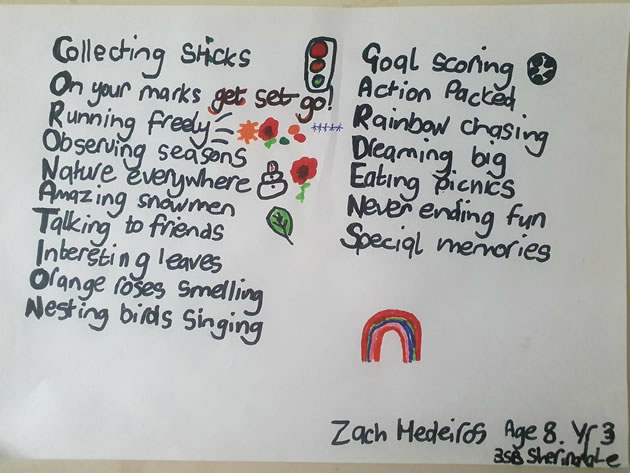 Collecting sticks
On your marks get set go!
Running freely
Observing seasons
Nature everywhere
Amazing snowmen
Talking to friends
Interesting leaves
Orange roses smelling
Nesting birds singing
Goal scoring
Action Packed
Rainbow chasing
Dreaming big
Eating picnics
Never ending fun
Special memories
Zach Medeiros Age 8. Yr 3
3SB Sheringdale